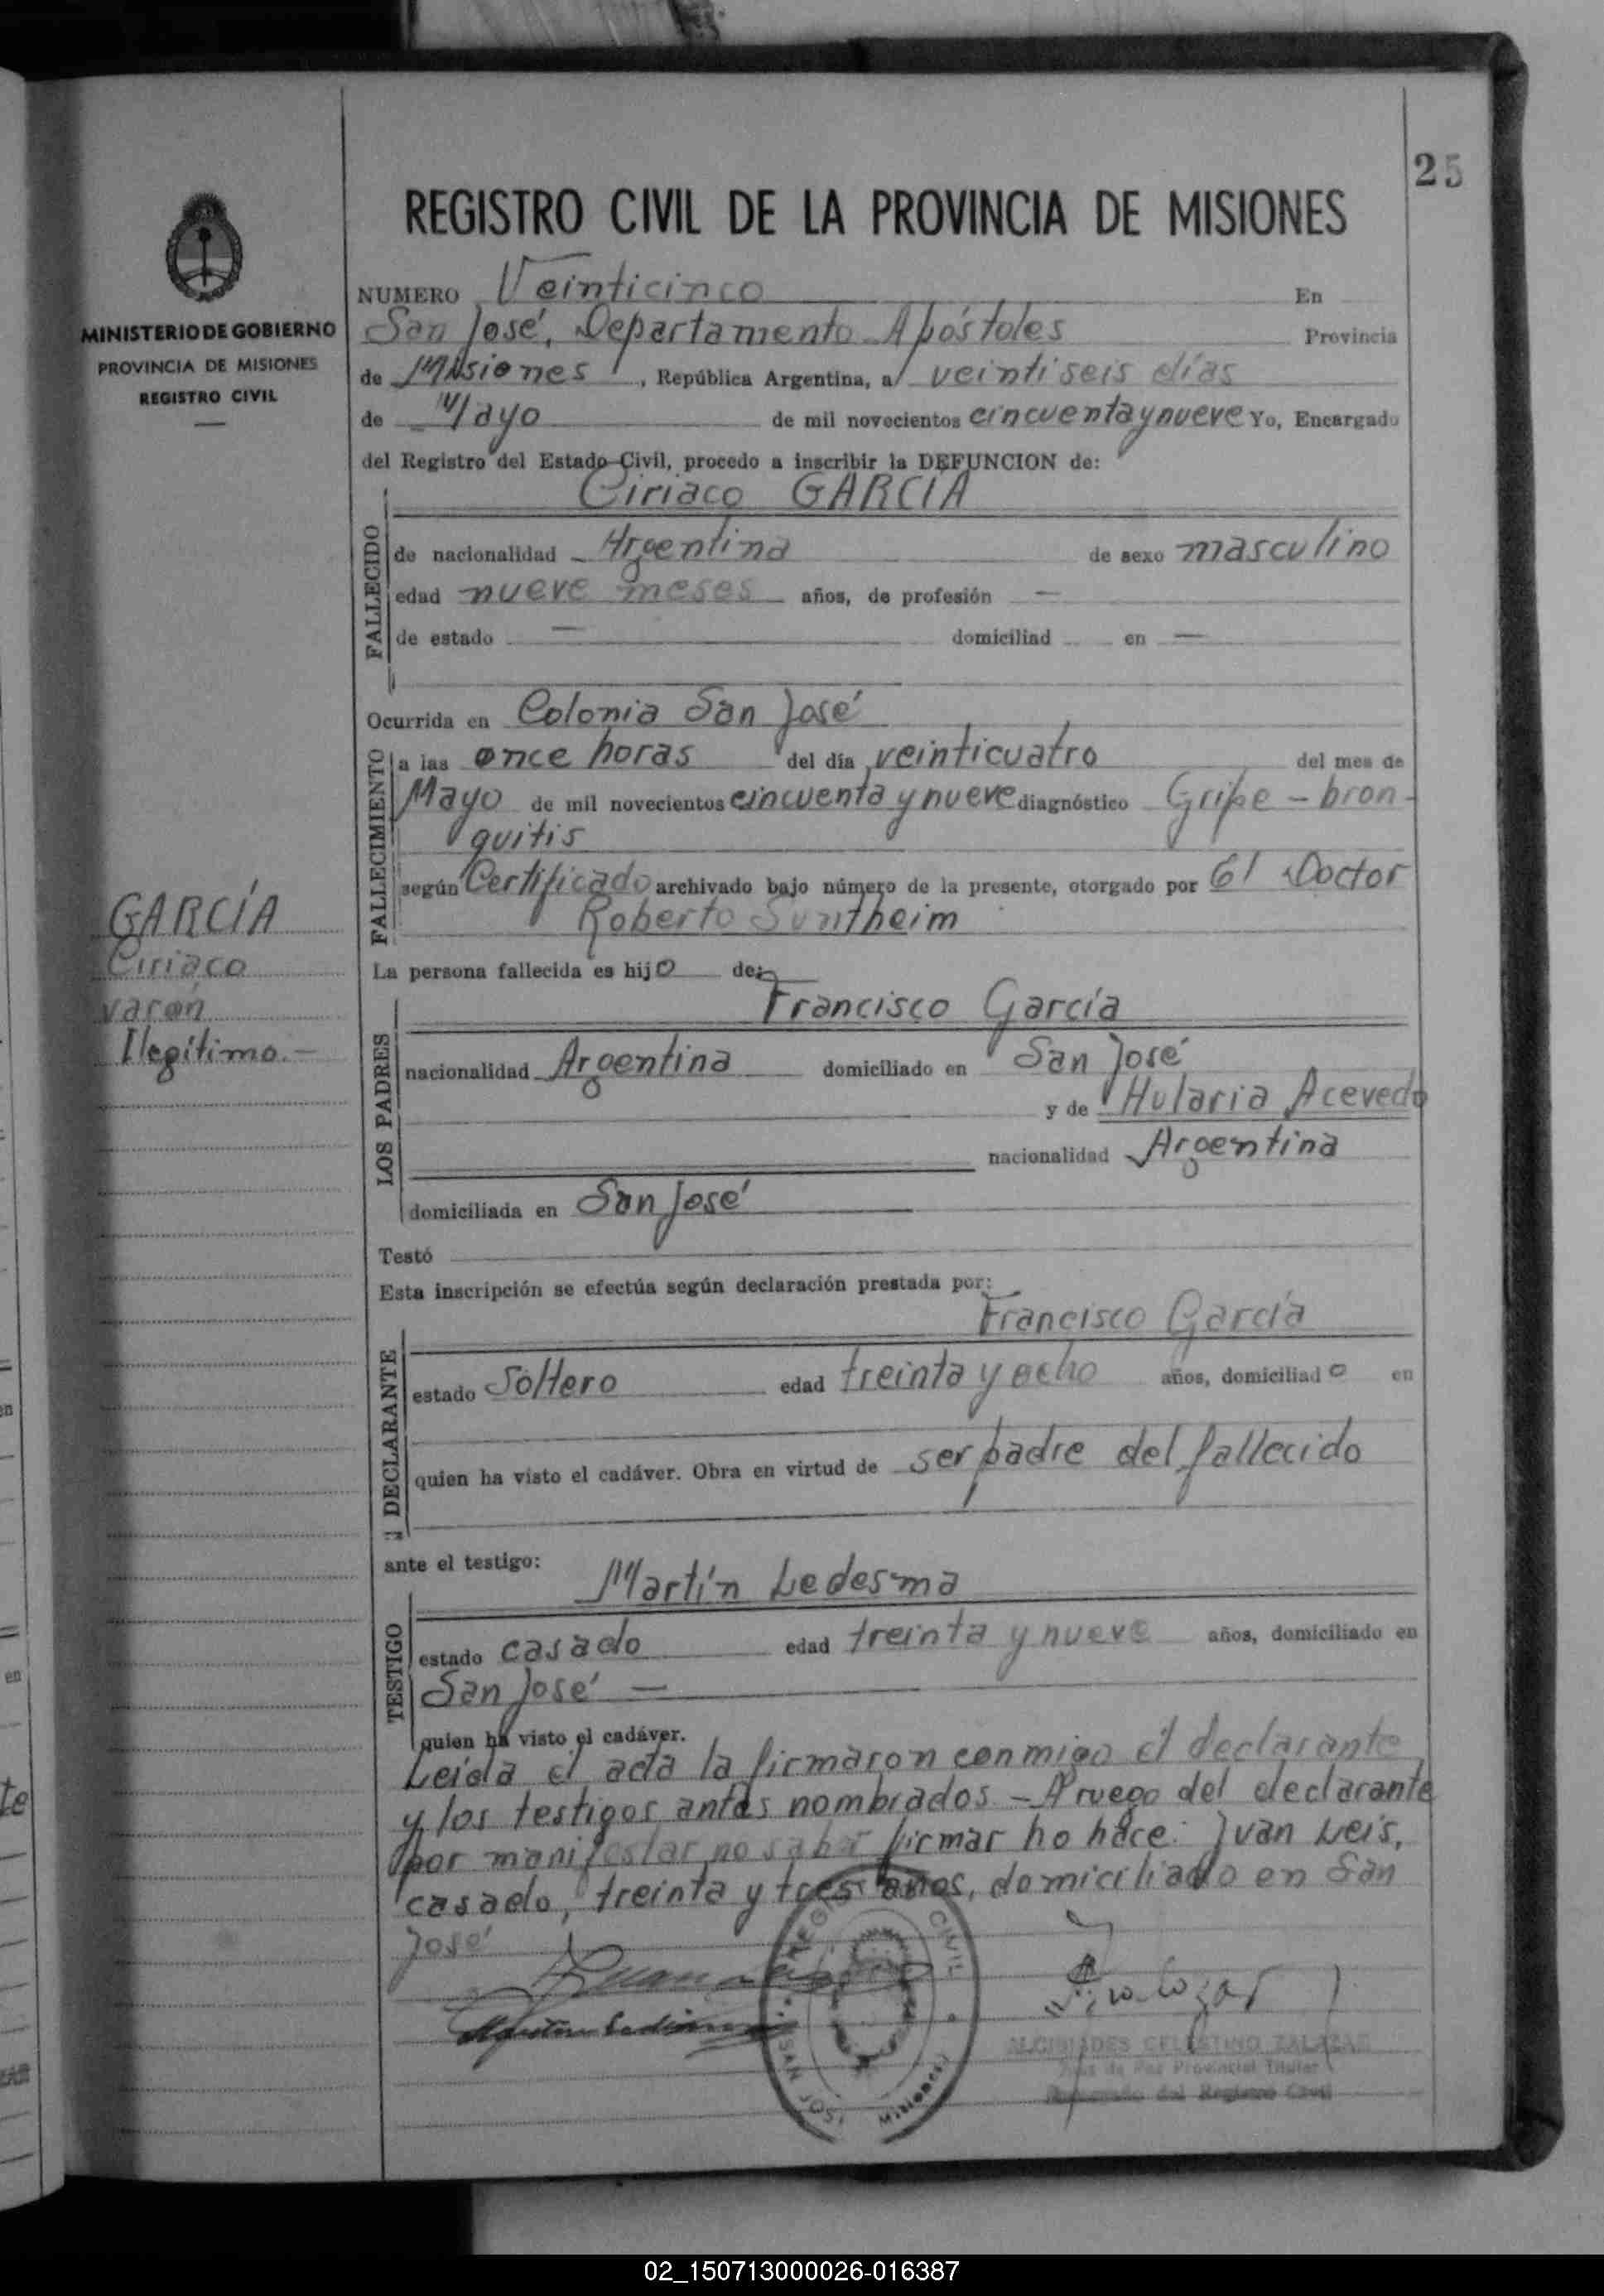 25
REGISTRO CIVIL DE LA PROVINCIA DE MISIONES
MINISTERIO DE GOBIERNO
PROVINCIA DE MISIONES
REGISTRO CIVIL
NUMERO Veinticinco En
San José, Departamento Apóstoles Provincia
de Misiones, República Argentina, a veintiseis días
de Mayo de mil novecientos cincuenta y nueve Yo, Encargado
del Registro del Estado Civil, procedo a inscribir la DEFUNCION de:
Ciriaco GARCIA
FALLECIDO
de nacionalidad Argentina de sexo masculino
edad nueve meses años, de profesión —
de estado — domiciliad en —
Ocurrida en Colonia San José
FALLECIMIENTO
a las once horas del día veinticuatro del mes de
Mayo de mil novecientos cincuenta y nueve diagnóstico Gripe - bron-
quitis
según Certificado archivado bajo número de la presente, otorgado por El Doctor
Roberto
GARCÍA
Ciriaco
varon
Ilegítimo.-
La persona fallecida es hijo de:
Francisco García
LOS PADRES
nacionalidad Argentina domiciliado en San José
y de Hularia Acevedo
nacionalidad Argentina
domiciliada en San José
Testó
Esta inscripción se efectúa según declaración prestada por:
Francisco García
DECLARANTE
estado Soltero edad treinta y ocho años, domiciliado en
quien ha visto el cadáver. Obra en virtud de ser padre del fallecido
ante el testigo:
Martín Ledesma
TESTIGO
estado casado edad treinta y nueve años, domiciliado en
San José —
quien ha visto el cadáver.
Leída el acta la firmaron conmigo el declarante
y los testigos antes nombrados - A ruego del declarante
por manifestar no saber firmar ho hace: Juan Leis,
casado, treinta y tres años, domiciliado en San
José
REGISTRO CIVIL
SAN JOSE
Misiones
ALCIBIADES CELESTINO ZALAZAR
Juez de Paz Provincial Titular
Encargado del Registro Civil
02_150713000026-016387